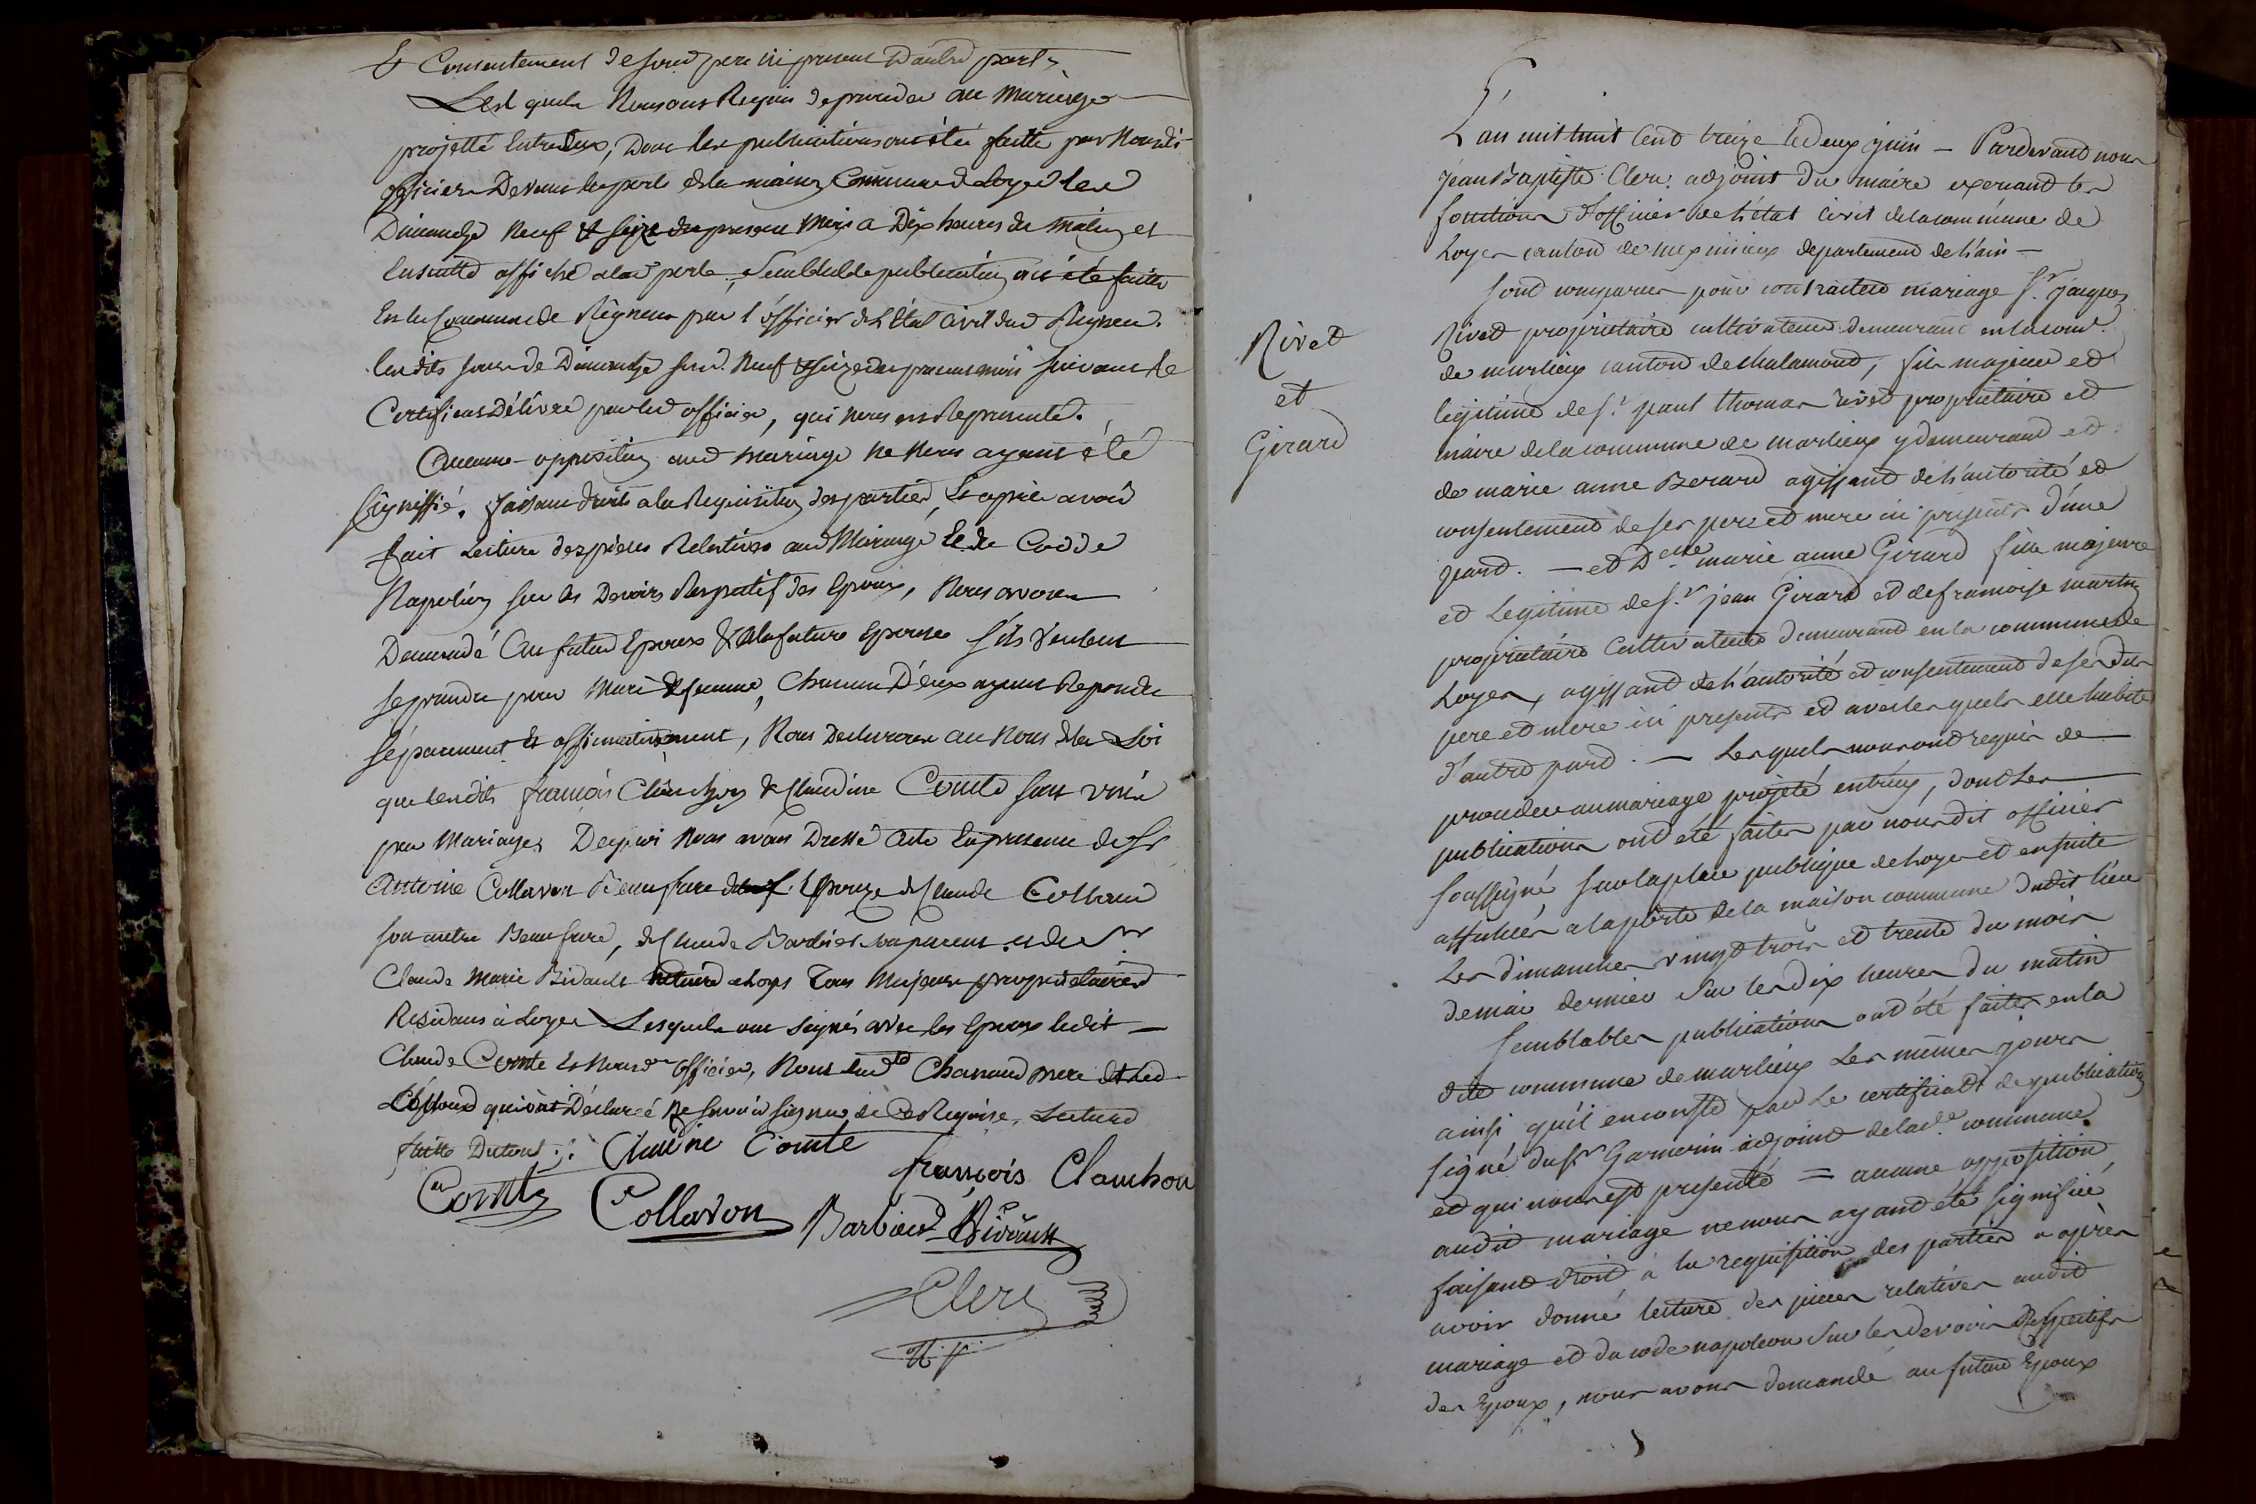 & Consentement de son d pere ici present D'autre part,
Lesquels Nous ont Requis de proceder au Mariage
projetté Entre Eux, Dont les publications ont été faitte par Nous dit
officier Devant la porte de la maison Commune de Loyes les
Dimanche Neuf & seize du present Mois a Dix heures du Matin et
Ensuitte affiché a lad porte, Semblable publication ont été faitte
En la Commune de Rigneux par l'officier de L'Etat Civil dud Rigneux
lesdits jours de Dimanche Neuf & seize du present mois suivant le
Certificat Délivré par led officier, qui Nous est Representé.
Aucune opposition aud Mariage Ne Nous ayant été
signiffié, faisant droit a la Requisition des parties, Et après avoir
fait Lecture des pièces Relatives aud Mariage Et du Codde
Napoléon sur les Devoirs Respectif des Epoux, Nous avons
Demandé Au futur Epoux & a la future Epouse s'ils Veulent
se prendre pour Mari & femme, Chacun D'eux ayant Repondu
séparement & affirmativement, Nous Declarons au Nom de la Loi
que lesdits françois Clanchon & Claudine Comte sont unis
par Mariages De quoi Nous avons Dressé Acte En presence de Sr
Antoine Collavon Beaufrere de l'Epouse de Claude
son autre Beaufrere, de Claude Barbier son parent et de Sr
Claude Marie Bidault Notaire a Loyes Tous Majeurs propriétaires
Résidans à Loyes Lesquels ont signés avec les Epoux ledit
Claude Comte Et Nousd officier, Non lad Chanaud mere Et led
qui ont Déclaré Ne savoir signer de ce Requise, Lecture
faitte Du tout ./. Claudine Comte
françois Clanchon
Comte Collavon Barbier Bidault
Clerc
L'an mil huit Cent treize le deux juin — Pardevant nous
Jean Baptiste Clerc adjoint du maire exerçant les
fonctions d'officier de l'état Civil de la commune de
Loyes canton de meximieux departement de l'ain —
sont comparus pour contracter mariage Sr jacques
Rivet propriétaire cultivateur demeurant en la com.
de marlieux canton de chalamond, fils majeur et
légitime de Sr paul thomas rivet propriétaire et
maire de la commune de marlieux y demeurand et
de marie anne Berard agissant de l'autorité et
consentement de ses pere et mere ici presents d'une
part. — et Delle marie anne Girard fille majeure
et Legitime de Sr jean Girard et de françoise martin
propriétaire Cultivateur demeurand en la commune de
Loyes, agissant de l'autorité et consentement de ses dits
pere et mere ici presents et avec lesquels elle habite
d'autre part. — Lesquels nous ont requis de
proceder au mariage projeté entr'eux, dont Les
publications ont été faites par nous dit officier
soussigné, sur la place publique de Loyes et ensuite
affichées a la porte de la maison commune dudit lieu
Les dimanches vingt trois et trente du mois
de mai dernier sur les dix heures du matin
Semblables publications ont été faites en la
dite commune de marlieux Les mêmes jours
ainsi qu'il en conste par Le certificat de publication
signé du Sr Garnerin adjoint de lad.e commune
et qui nous est presenté = aucune opposition
audit mariage ne nous ayant été signifiée,
faisant droit à la requisition des parties, après
avoir donné lecture des pieces relatives audit
mariage et du code napoleon sur les devoirs Respectifs
des Epoux, nous avons demandé au futur Epoux
Rivet
et
Girard